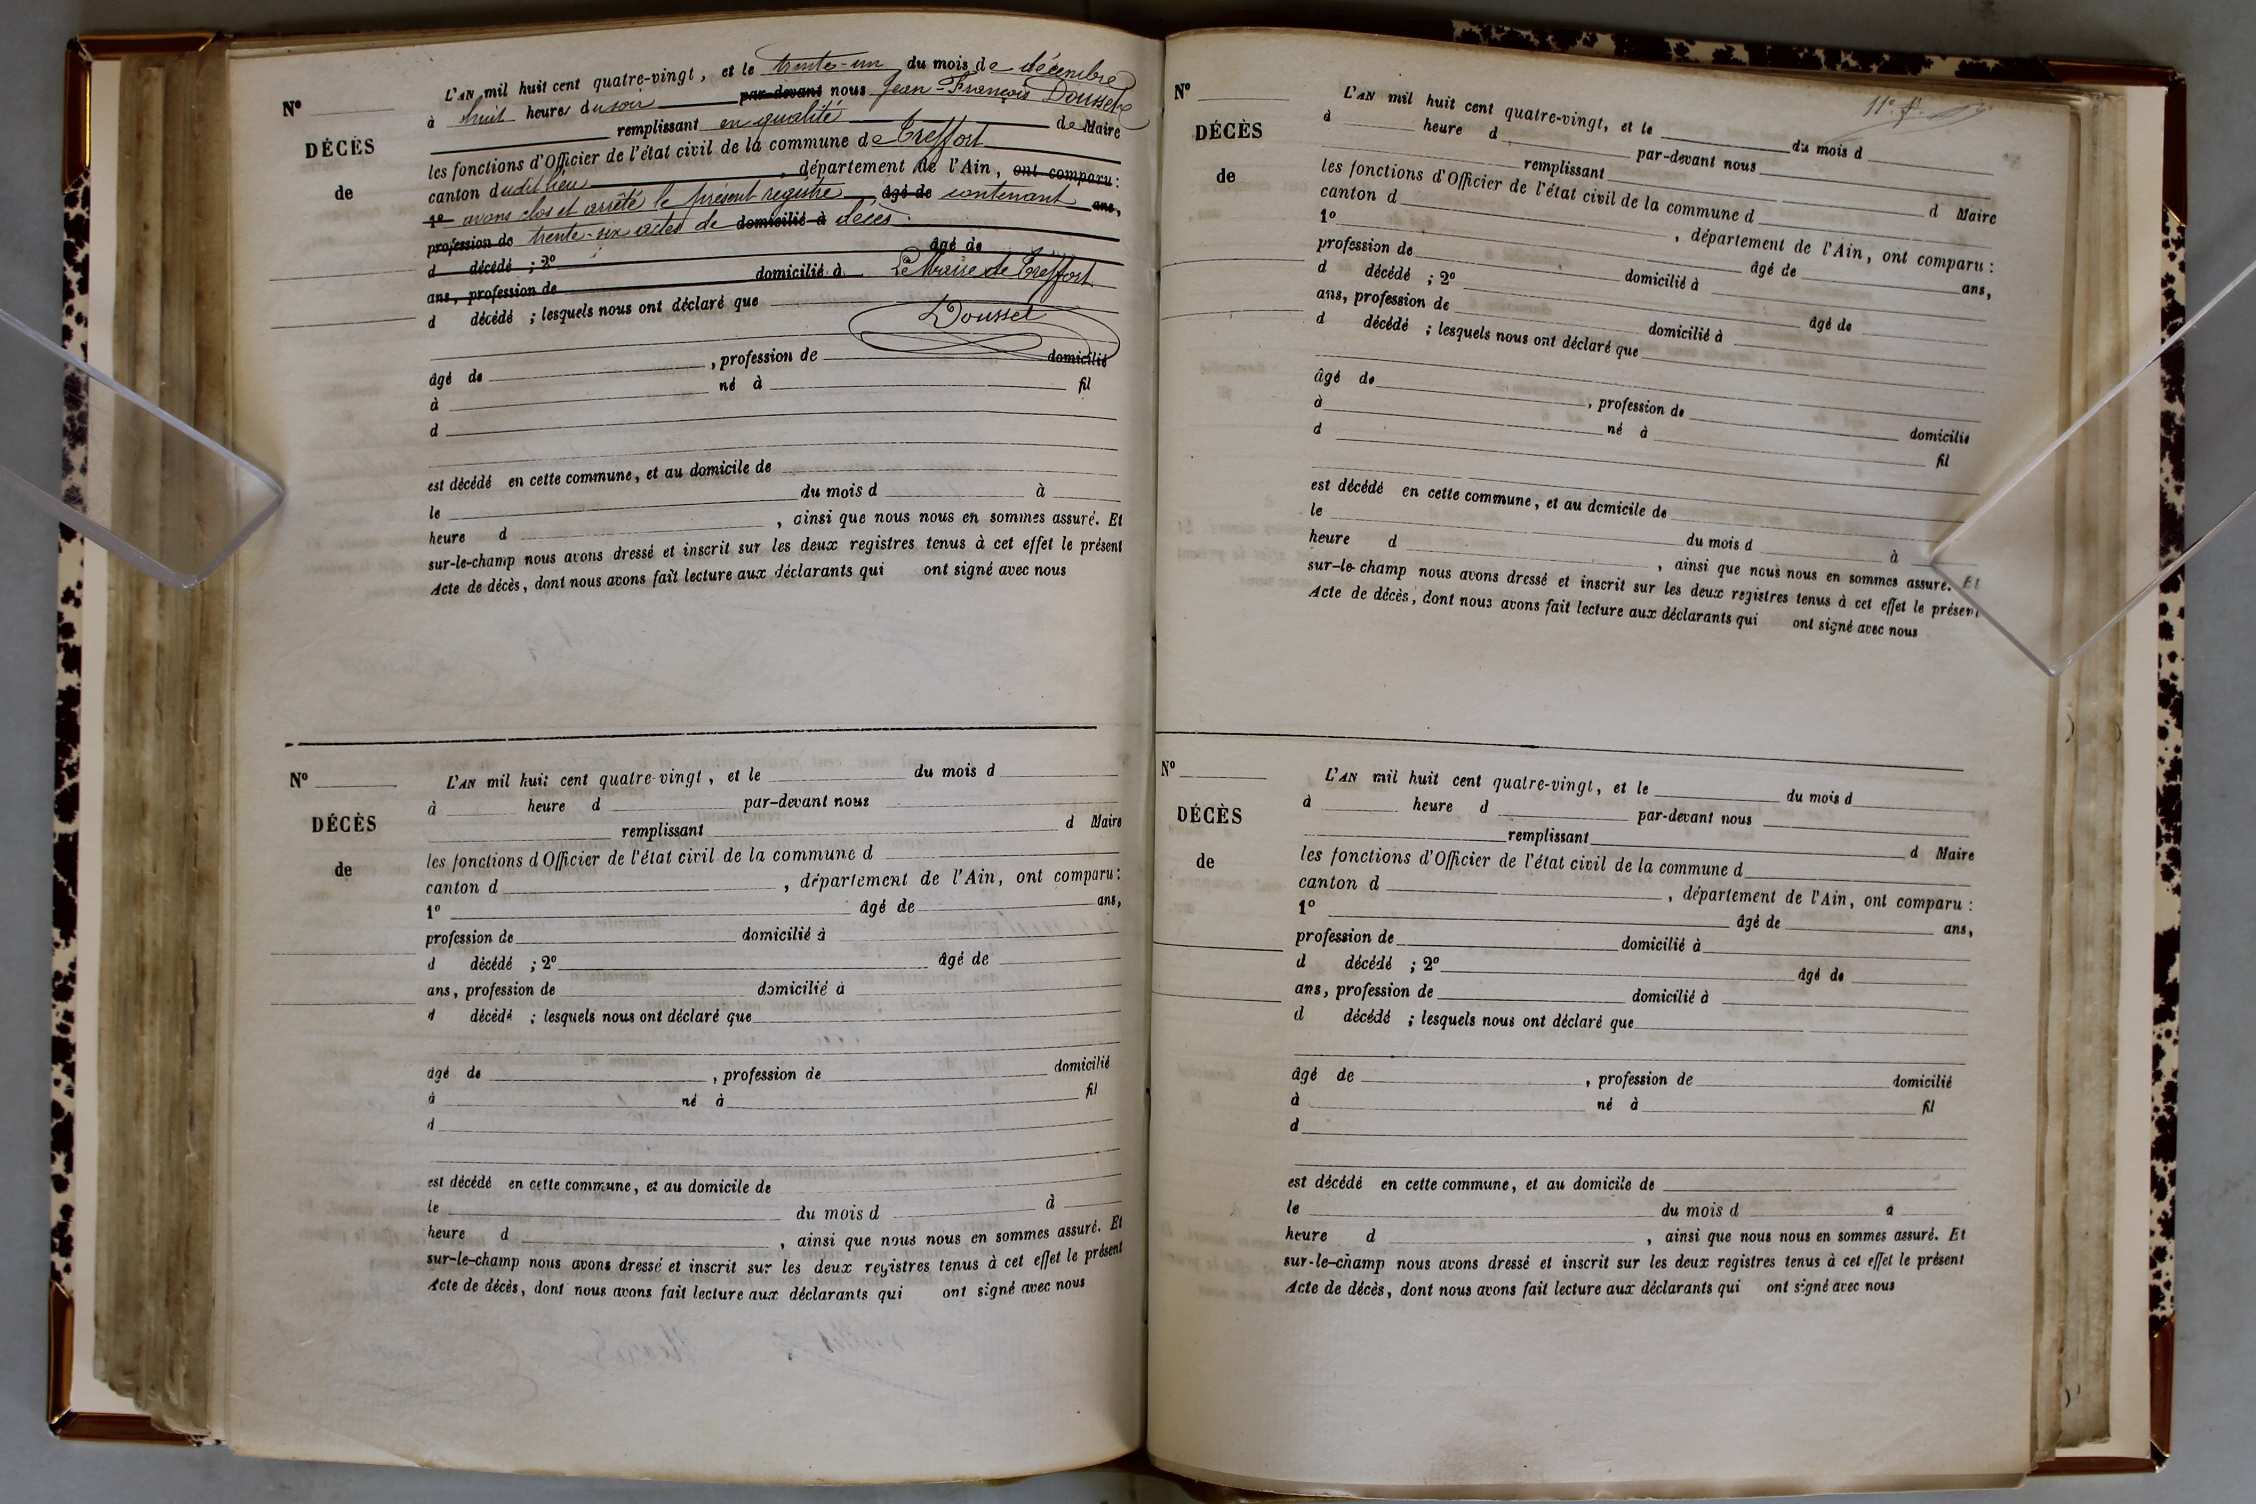 N°
DÉCÈS
de
L'AN mil huit cent quatre-vingt, et le trente-un du mois de décembre
à huit heures du soir par-devant nous Jean-François Doussel
remplissant en qualité de Maire
les fonctions d'Officier de l'état civil de la commune de Treffort
canton dudit lieu, département de l'Ain, ont comparu:
1° avons clos et arrêté le présent registre âgé de contenant ans,
profession de trente-six actes de domicilié à décès.
d décédé ; 2° âgé de
ans, profession de domicilié à Le Maire de Treffort
d décédé ; lesquels nous ont déclaré que
Doussel
âgé de , profession de domicilié
à né à fil
d
est décédé en cette commune, et au domicile de
le du mois d à
heure d , ainsi que nous nous en sommes assuré. Et
sur-le-champ nous avons dressé et inscrit sur les deux registres tenus à cet effet le présent
Acte de décès, dont nous avons fait lecture aux déclarants qui ont signé avec nous
N°
DÉCÈS
de
L'AN mil huit cent quatre-vingt, et le du mois d
à heure d par-devant nous
remplissant d Maire
les fonctions d'Officier de l'état civil de la commune d
canton d , département de l'Ain, ont comparu:
1° âgé de ans,
profession de domicilié à
d décédé ; 2° âgé de
ans, profession de domicilié à
d décédé ; lesquels nous ont déclaré que
âgé de , profession de domicilié
à né à fil
d
est décédé en cette commune, et au domicile de
le du mois d à
heure d , ainsi que nous nous en sommes assuré. Et
sur-le-champ nous avons dressé et inscrit sur les deux registres tenus à cet effet le présent
Acte de décès, dont nous avons fait lecture aux déclarants qui ont signé avec nous
N°
DÉCÈS
de
L'AN mil huit cent quatre-vingt, et le du mois d
à heure d par-devant nous
remplissant d Maire
les fonctions d'Officier de l'état civil de la commune d
canton d , département de l'Ain, ont comparu:
1° âgé de ans,
profession de domicilié à
d décédé ; 2° âgé de
ans, profession de domicilié à
d décédé ; lesquels nous ont déclaré que
âgé de , profession de domicilié
à né à fil
d
est décédé en cette commune, et au domicile de
le du mois d à
heure d , ainsi que nous nous en sommes assuré. Et
sur-le-champ nous avons dressé et inscrit sur les deux registres tenus à cet effet le présent
Acte de décès, dont nous avons fait lecture aux déclarants qui ont signé avec nous
N°
DÉCÈS
de
L'AN mil huit cent quatre-vingt, et le du mois d
à heure d par-devant nous
remplissant d Maire
les fonctions d'Officier de l'état civil de la commune d
canton d , département de l'Ain, ont comparu:
1° âgé de ans,
profession de domicilié à
d décédé ; 2° âgé de
ans, profession de domicilié à
d décédé ; lesquels nous ont déclaré que
âgé de , profession de domicilié
à né à fil
d
est décédé en cette commune, et au domicile de
le du mois d à
heure d , ainsi que nous nous en sommes assuré. Et
sur-le-champ nous avons dressé et inscrit sur les deux registres tenus à cet effet le présent
Acte de décès, dont nous avons fait lecture aux déclarants qui ont signé avec nous